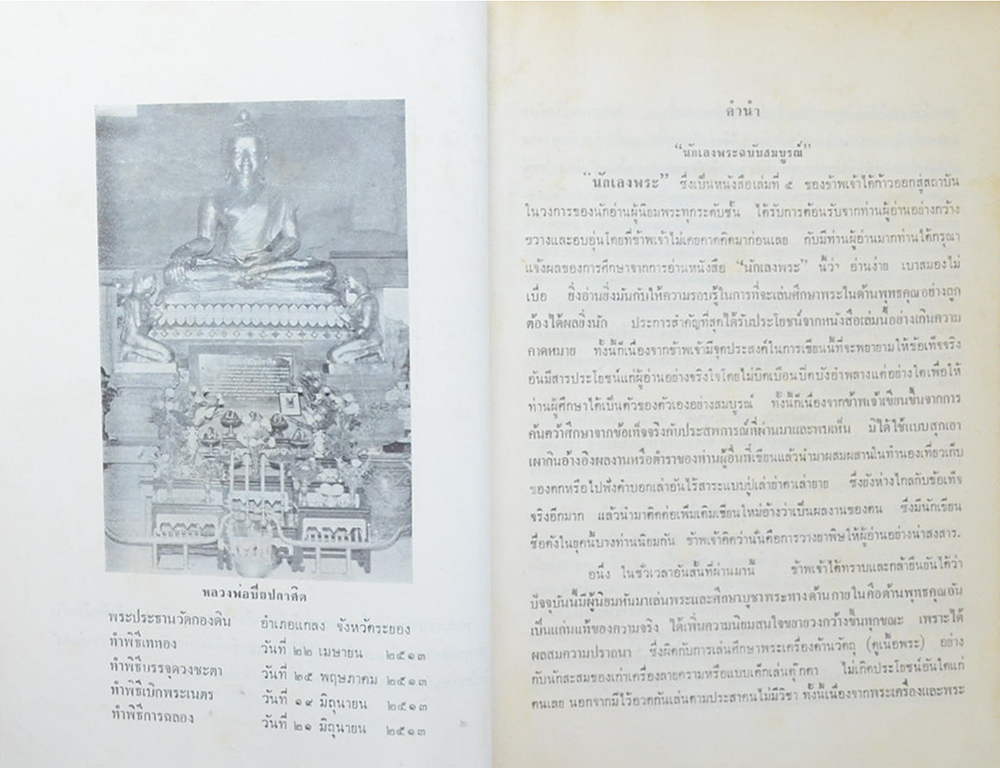 หลวงพ่อปิยปกาสิต
พระประธานวัดกองดิน อำเภอแกลง จังหวัดระยอง
ทำพิธีเททอง วันที่ ๒๒ เมษายน ๒๕๑๓
ทำพิธีบรรจุดวงชะตา วันที่ ๒๕ พฤษภาคม ๒๕๑๓
ทำพิธีเบิกพระเนตร วันที่ ๑๙ มิถุนายน ๒๕๑๓
ทำพิธีการฉลอง วันที่ ๒๑ มิถุนายน ๒๕๑๓
คำนำ
“นักเลงพระฉบับสมบูรณ์”
“นักเลงพระ” ซึ่งเป็นหนังสือเล่มที่ ๕ ของข้าพเจ้าได้ก้าวออกสู่สถาบัน
ในวงการของนักอ่านผู้นิยมพระทุกระดับชั้น ได้รับการต้อนรับจากท่านผู้อ่านอย่างกว้าง
ขวางและอบอุ่นโดยที่ข้าพเจ้าไม่เคยคาดคิดมาก่อนเลย กับมีท่านผู้อ่านมากท่านได้กรุณา
แจ้งผลของการศึกษาจากการอ่านหนังสือ “นักเลงพระ” นี้ว่า อ่านง่าย เบาสมองไม่
เบื่อ ยิ่งอ่านยิ่งมันกับให้ความรอบรู้ในการที่จะเล่นศึกษาพระในด้านพุทธคุณอย่างถูก
ต้องได้ผลยิ่งนัก ประการสำคัญที่สุดได้รับประโยชน์จากหนังสือเล่มนี้อย่างเกินความ
คาดหมาย ทั้งนี้ก็เนื่องจากข้าพเจ้ามีจุดประสงค์ในการเขียนนี้ที่จะพยายามให้ข้อเท็จจริง
อันมีสารประโยชน์แก่ผู้อ่านอย่างจริงใจโดยไม่บิดเบือนปิดบังอำพลางแต่อย่างใดเพื่อให้
ท่านผู้ศึกษาได้เป็นตัวของตัวเองอย่างสมบูรณ์ ทั้งนี้ก็เนื่องจากข้าพเจ้าเขียนขึ้นจากการ
ค้นคว้าศึกษาจากข้อเท็จจริงกับประสพการณ์ที่ผ่านมาและพบเห็น มิได้ใช้แบบสุกเอา
เผากินอ้างอิงผลงานหรือตำราของท่านผู้อื่นที่เขียนแล้วนำมาผสมผสานในทำนองเที่ยวเก็บ
ของตกหรือไปฟังคำบอกเล่าอันไร้สาระแบบปู่เล่าย่าตาเล่ายาย ซึ่งยังห่างไกลกับข้อเท็จ
จริงอีกมาก แล้วนำมาคิดต่อเพิ่มเติมเขียนใหม่อ้างว่าเป็นผลงานของตน ซึ่งมีนักเขียน
ชื่อดังในยุคนี้บางท่านนิยมกัน ข้าพเจ้าคิดว่านั่นคือการวางยาพิษให้ผู้อ่านอย่างน่าสงสาร.
อนึ่ง ในชั่วเวลาอันสั้นที่ผ่านมานี้ ข้าพเจ้าได้ทราบและกล้ายืนยันได้ว่า
ปัจจุบันนี้มีผู้นิยมหันมาเล่นพระและศึกษาบูชาพระทางด้านภายในคือด้านพุทธคุณอัน
เป็นแก่นแท้ของความจริง ได้เพิ่มความนิยมสนใจขยายวงกว้างขึ้นทุกขณะ เพราะได้
ผลสมความปราถนา ซึ่งผิดกับการเล่นศึกษาพระเครื่องด้านวัตถุ (ดูเนื้อพระ) อย่าง
กับนักสะสมของเก่าเครื่องลายครามหรือแบบเด็กเล่นตุ๊กตา ไม่เกิดประโยชน์อันใดแก่
ตนเลย นอกจากมีไว้อวดกันเล่นตามประสาคนไม่มีวิชา ทั้งนี้เนื่องจากพระเครื่องและพระ